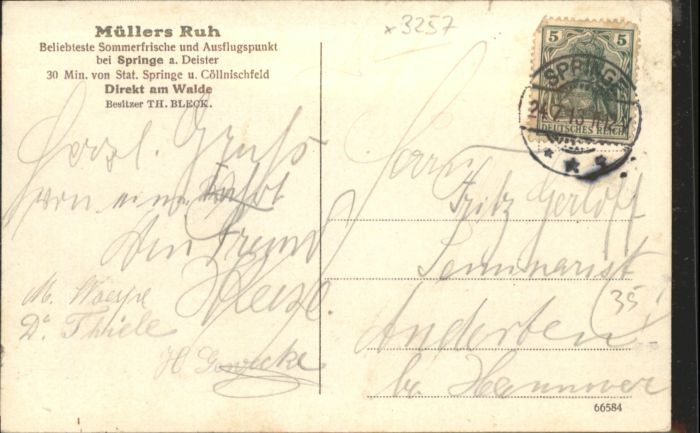 Müllers Ruh
Beliebteste Sommerfrische und Ausflugspunkt
bei Springe a. Deister
30 Min. von Stat. Springe u. Cöllnischfeld
Direkt am Walde
Besitzer TH. BLECK.
x 3257
5 5
SPRINGE
DEUTSCHES REICH
Herzl. Gruß
von einer
Dein Freund
M. Woespe
Dr. Thiele
H. Gewecke
Herrn
Fritz Gerloff
Seminarist
(35)
Anderten
bei Hannover
66584